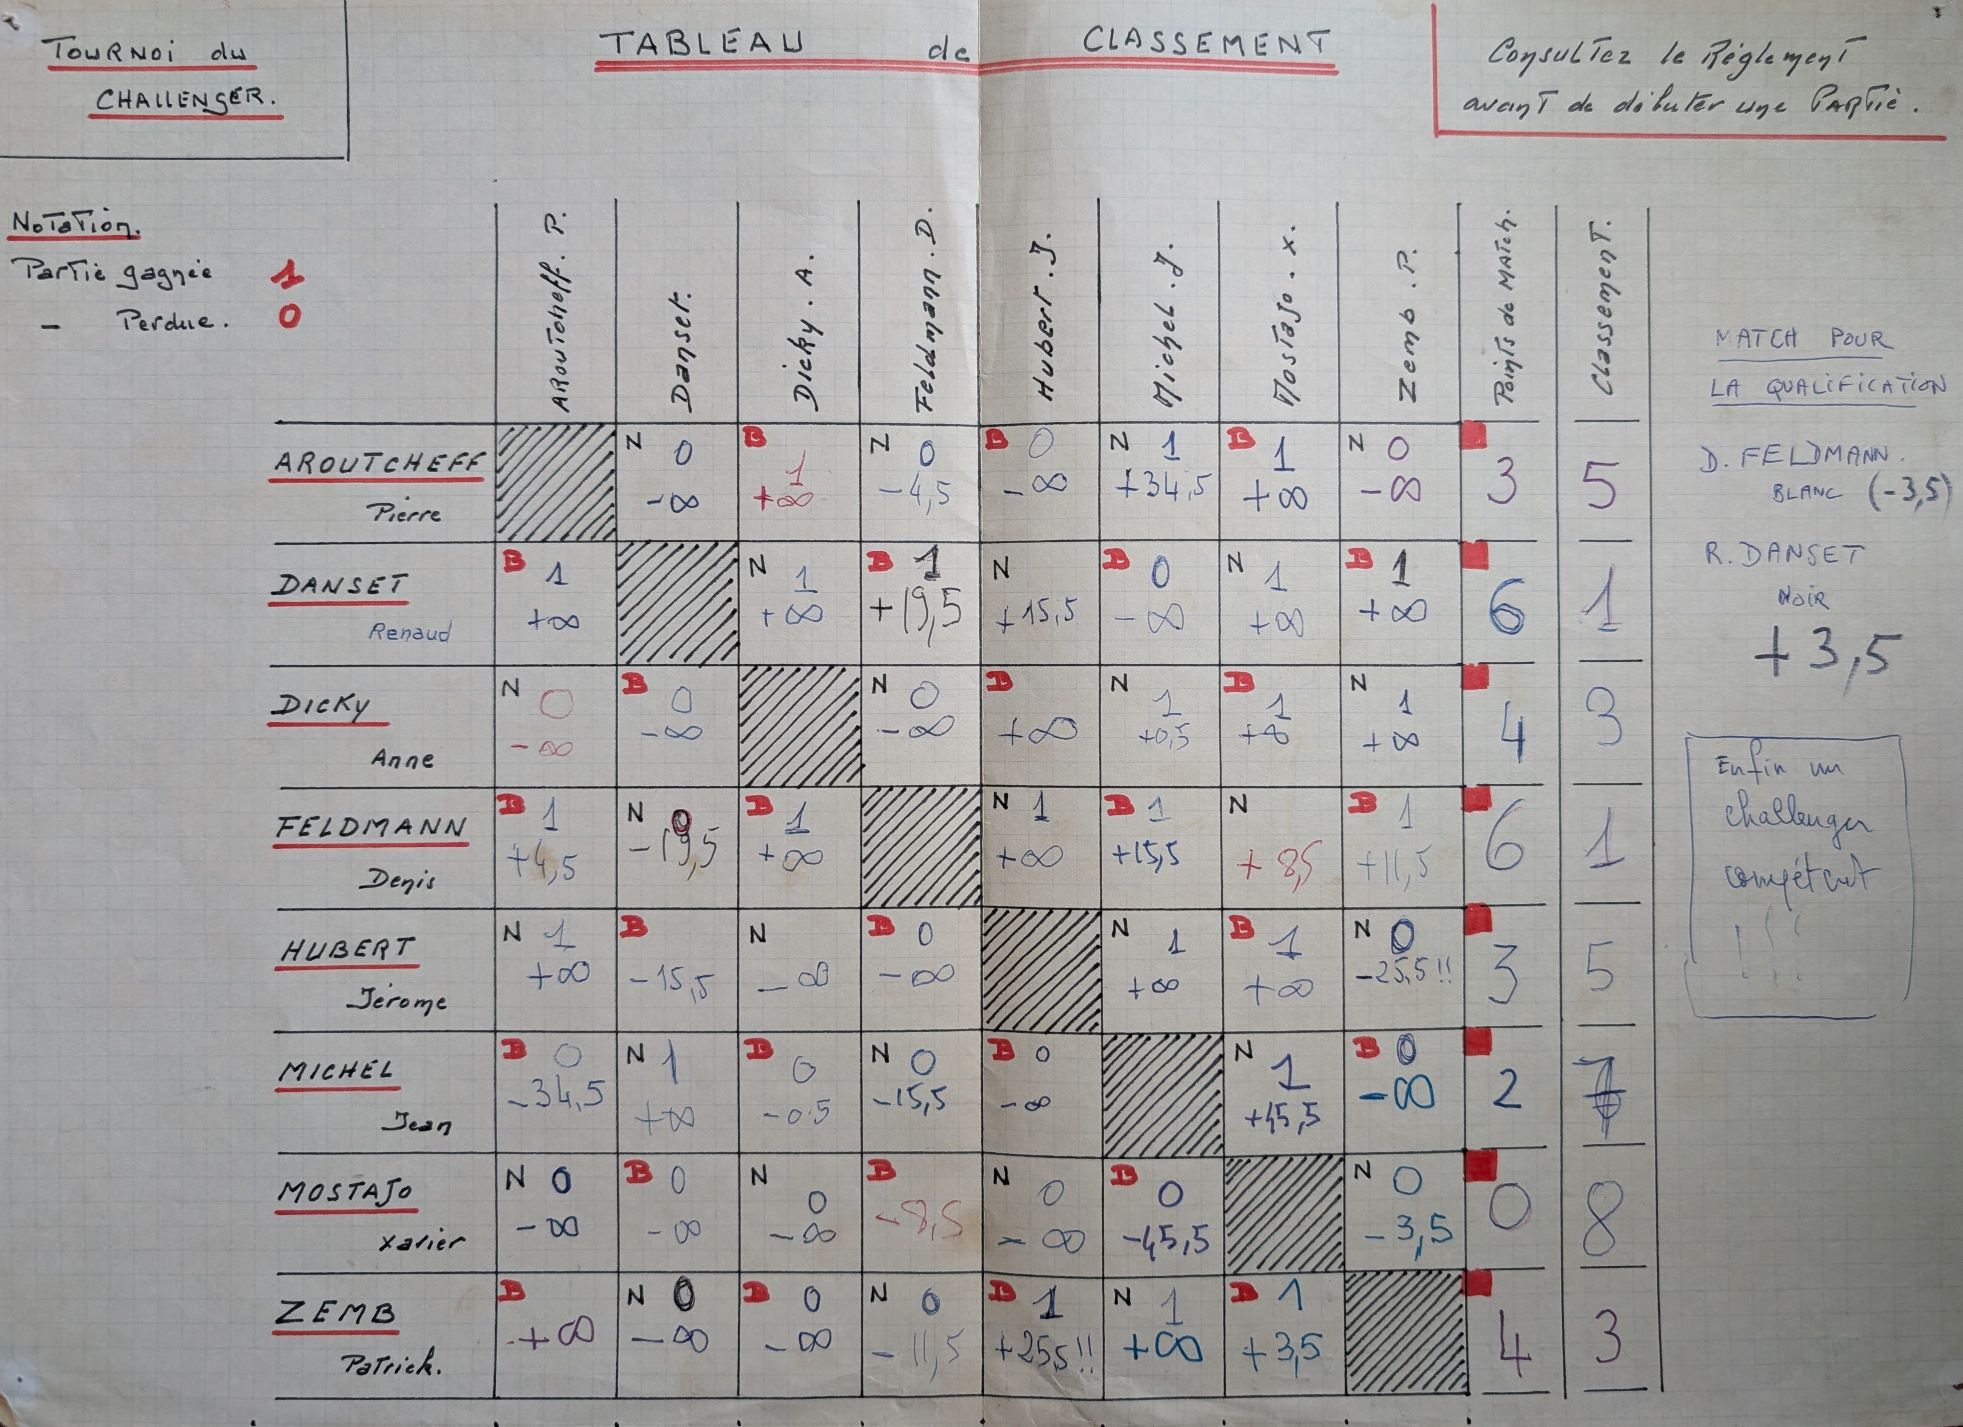 TOURNOI du
CHALLENGER.
TABLEAU de CLASSEMENT
Consultez le Réglement
avant de débuter une Partie.
Notation.
Partie gagnée 1
— Perdue. 0
AROUTCHEFF. P.
Danset.
Dicky. A.
Feldmann. D.
Hubert. J.
Michel. J.
Mostajo. X.
Zemb. P.
Points de Match.
Classement.
MATCH POUR
LA QUALIFICATION
D. FELDMANN.
BLANC (-3,5)
R. DANSET
NOIR
+3,5
Enfin un
challenger
compétent
! ! !
AROUTCHEFF N 0 B 1 N 0 B 0 N 1 B 1 N 0 3 5
Pierre -∞ +∞ -4,5 -∞ +34,5 +∞ -∞
DANSET B 1 N 1 B 1 N B 0 N 1 B 1 6 1
Renaud +∞ +∞ +19,5 +15,5 -∞ +∞ +∞
DICKY N 0 B 0 N 0 B N 1 B 1 N 1 4 3
Anne -∞ -∞ -∞ +∞ +0,5 +∞ +∞
FELDMANN B 1 N 0 B 1 N 1 B 1 N B 1 6 1
Denis +4,5 -19,5 +∞ +∞ +15,5 +8,5 +11,5
HUBERT N 1 B N B 0 N 1 B 1 N 0 3 5
Jérome +∞ -15,5 -∞ -∞ +∞ +∞ -25,5!!
MICHEL B 0 N 1 B 0 N 0 B 0 N 1 B 0 2 7
Jean -34,5 +∞ -0,5 -15,5 -∞ +45,5 -∞
MOSTAJO N 0 B 0 N 0 B N 0 B 0 N 0 0 8
Xavier -∞ -∞ -∞ -8,5 -∞ -45,5 -3,5
ZEMB B N 0 B 0 N 0 B 1 N 1 B 1 4 3
Patrick. +∞ -∞ -∞ -11,5 +25,5!! +∞ +3,5